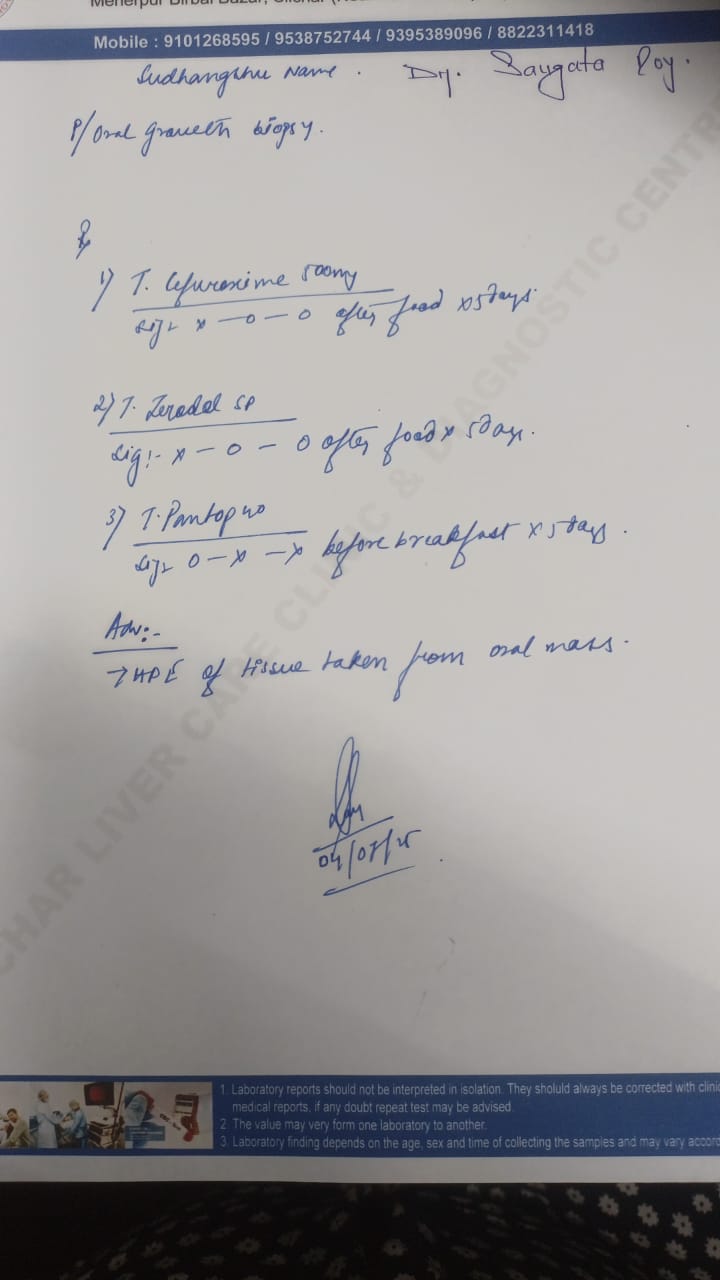 Mobile : 9101268595 / 9538752744 / 9395389096 / 8822311418
Sudhangshu Name . Dr. Saygata Roy.
P/ Oral Growth biopsy.
Rx
1) T. Cefuroxime 500mg
Sig:- x - 0 - 0 after food x 5 days.
2) T. Zerodol SP
Sig:- x - 0 - 0 after food x 5 days.
3) T. Pantop 40
Sig:- 0 - x - x before breakfast x 5 days.
Adv:-
→ HPE of tissue taken from oral mass.
04/07/25
CHAR LIVER CARE CLINIC & DIAGNOSTIC CENTRE
1. Laboratory reports should not be interpreted in isolation. They sholuld always be corrected with clinic
medical reports, if any doubt repeat test may be advised.
2. The value may very form one laboratory to another.
3. Laboratory finding depends on the age, sex and time of collecting the samples and may vary accord